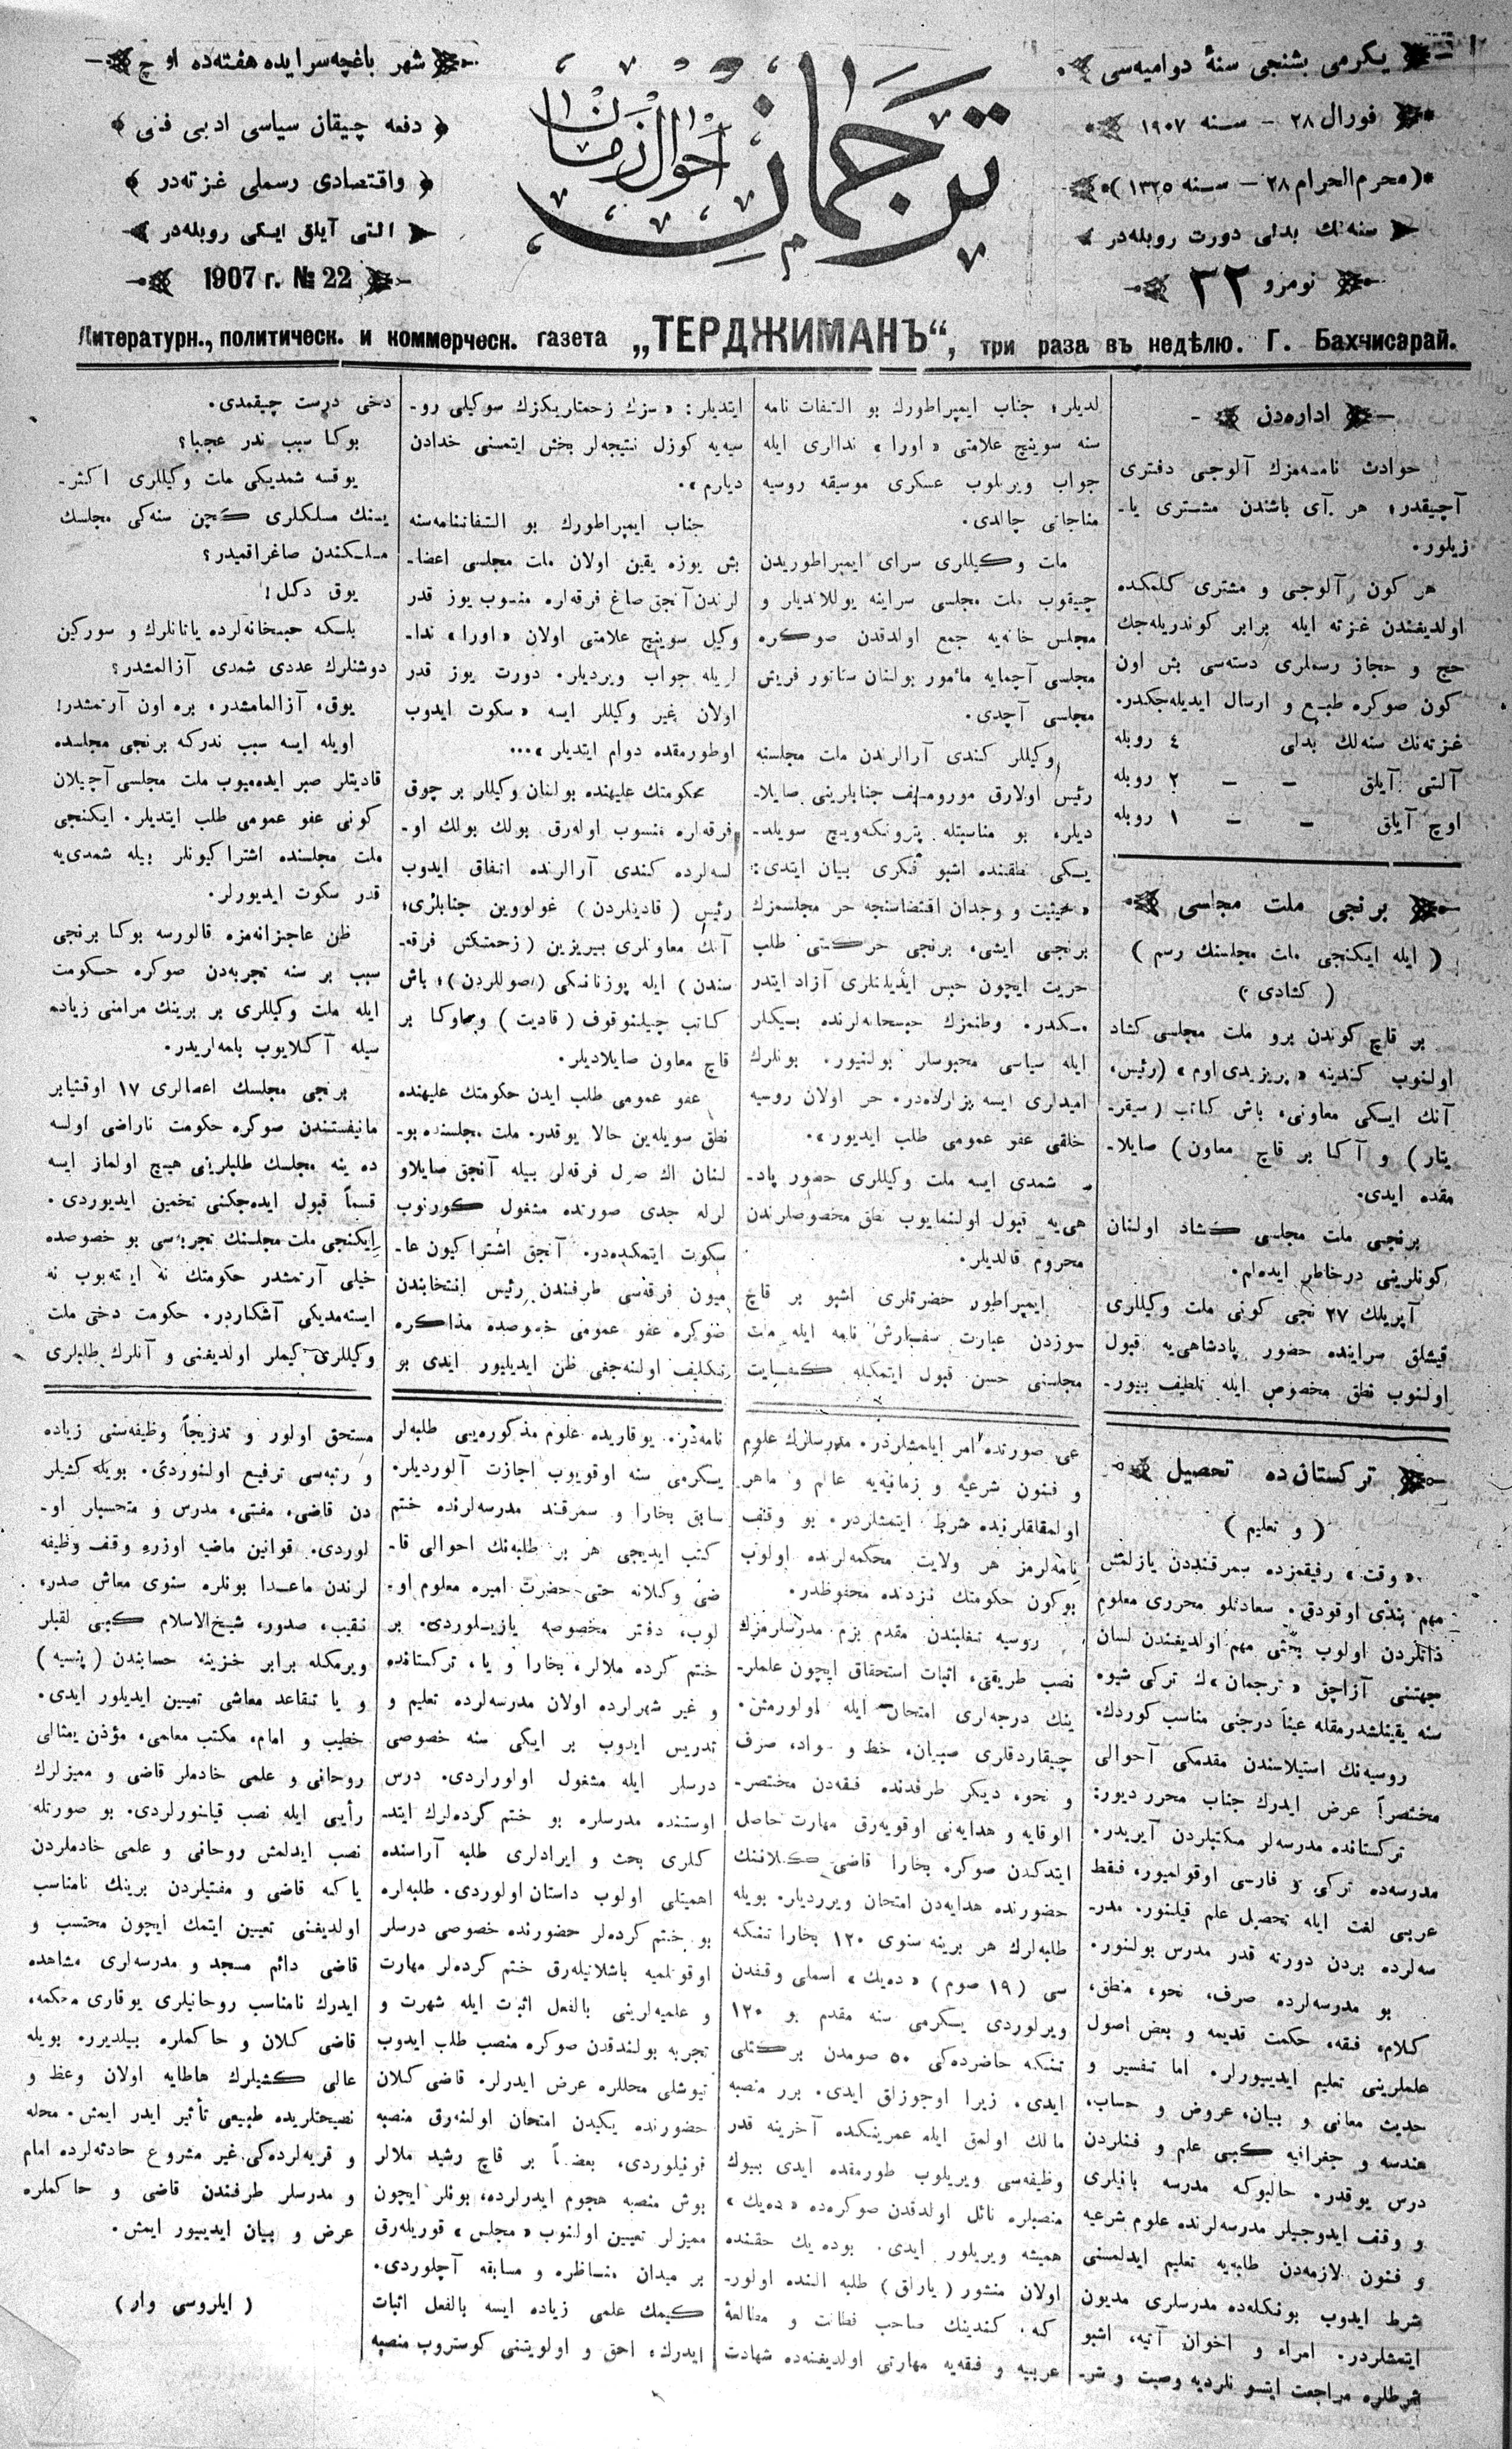 یكرمی بشنجی سنهٔ دوامیه‌سی
فورال ٢٨ — سنه ١٩٠٧
(محرم‌الحرام ٢٨ — سنه ١٣٢٥)
سنه‌لك بدلی دورت روبله‌در
نومرو ٢٢
ترجمان
احوال زمان
شهر باغچه‌سرایده هفته‌ده اوچ
دفعه چیقان سیاسی ادبی فنی
واقتصادی رسملی غزته‌در
التی آیلق ایكی روبله‌در
1907 г. № 22
Литературн., политическ. и коммерческ. газета „ТЕРДЖИМАНЪ“, три раза въ недѣлю. Г. Бахчисарай.
اداره‌دن
حوادث نامه‌مزك آلوجی دفتری
آچیقدر؛ هر آی باشندن مشتری یا-
زیلور.
هر كون آلوجی و مشتری كلمكده
اولدیغندن غزته ایله برابر كوندریله‌جك
حج و حجاز رسملری دسته‌سی بش اون
كون صوكره طبع و ارسال ایدیله‌جكدر.
غزته‌نك سنه‌لك بدلی ٤ روبله
آلتی آیلق — — ٢ روبله
اوچ آیلق — — ١ روبله
برنجی ملت مجلسی
( ایله ایكنجی ملت مجلسنك رسم )
( كشادی )
بر قاچ كوندن برو ملت مجلسی كشاد
اولنوب كندینه «پریزیدی‌اوم» (رئیس،
آنك ایكی معاونی، باش كاتب (سیقر-
یتار) و آكا بر قاچ معاون) صایلا-
مقده ایدی.
برنجی ملت مجلسی كشاد اولنان
كونلرینی درخاطر ایده‌لم.
آپریلك ٢٧ نجی كونی ملت وكیللری
قیشلق سراینده حضور پادشاهی‌یه قبول
اولنوب نطق مخصوص ایله تلطیف بیور-
لدیلر؛ جناب ایمپراطورك بو التفات نامه
سنه سوینچ علامتی «اورا» ندالری ایله
جواب ویریلوب عسكری موسیقه روسیه
مناجاتی چالدی.
ملت وكیللری سرای ایمپراطوریدن
چیقوب ملت مجلسی سراینه یوللاندیلر و
مجلس خانه‌یه جمع اولدقدن صوكره
مجلسی آچمایه مأمور بولنان سناتور فریش
مجلسی آچدی.
وكیللر كندی آرالرندن ملت مجلسنه
رئیس اولارق مورومسف جنابلرینی صایلا-
دیلر، بو مناسبتله پترونكه‌ویچ سویلد-
یكی نطقنده اشبو فكری بیان ایتدی:
«حیثیت و وجدان اقتضاسنجه حر مجلسمزك
برنجی ایشی، برنجی حركتی طلب
حریت ایچون حبس ایدیلنلری آزاد ایتدر
مكدر. وطنمزك حبسخانه‌لرنده بیكلر
ایله سیاسی محبوسلر بولنیور. بونلرك
امیدلری ایسه بزلرده‌در. حر اولان روسیه
خلقی عفو عمومی طلب ایدیور».
شمدی ایسه ملت وكیللری حضور پاد-
هی‌یه قبول اولنمایوب نطق مخصوصلرندن
محروم قالدیلر.
ایمپراطور حضرتلری اشبو بر قاچ
سوزدن عبارت سفارش نامه ایله ملت
مجلسنی حسن قبول ایتمكله كفایت
ایتدیلر: «سزك زحمتلریكزك سوكیلی رو-
سیه‌یه كوزل نتیجه‌لر بخش ایتمسنی خدادن
دیلرم».
جناب ایمپراطورك بو التفاتنامه‌سنه
بش یوزه یقین اولان ملت مجلسی اعضا-
لرندن آنجق صاغ فرقه‌لره منسوب یوز قدر
وكیل سوینچ علامتی اولان «اورا» ندا-
لریله جواب ویردیلر. دورت یوز قدر
اولان غیر وكیللر ایسه «سكوت ایدوب
اوطورمقده دوام ایتدیلر»...
حكومتك علیهنده بولنان وكیللر بر چوق
فرقه‌لره منسوب اوله‌رق بولك بولك او-
لسه‌لرده كندی آرالرنده اتفاق ایدوب
رئیس (قادیتلردن) غولووین جنابلری؛
آنك معاونلری بیریزین (زحمتكش فرقه-
سندن) ایله پوزنانسكی (صوللردن)؛ باش
كاتب چیلنوقوف (قادیت) و مذكوركا بر
قاچ معاون صایلادیلر.
عفو عمومی طلب ایدن حكومتك علیهنده
نطق سویله‌ین حالا یوقدر. ملت مجلسنده بو-
لنان اك صول فرقه‌لر بیله آنجق صایلاو
لرله جدی صورتده مشغول كورنوب
سكوت ایتمكده‌در. آنجق اشتراكیون عا-
میون فرقه‌سی طرفندن رئیس انتخابندن
صوكره عفو عمومی خصوصده مذاكره
تكلیف اولنه‌جغی ظن ایدیلیور ایدی بو
دخی درست چیقمدی.
بوكا سبب ندر عجبا؟
یوقسه شمدیكی ملت وكیللری اكثر-
یسنك مسلكلری كچن سنه‌كی مجلسك
مسلكندن صاغراقمیدر؟
یوق دكل!
بلكه حبسخانه‌لرده یاتانلرك و سوركین
دوشنلرك عددی شمدی آزالمشدر؟
یوق، آزالمامشدر، بره اون آرتمشدر!
اویله ایسه سبب ندركه برنجی مجلسده
قادیتلر صبر ایده‌میوب ملت مجلسی آچیلان
كونی عفو عمومی طلب ایتدیلر. ایكنجی
ملت مجلسنده اشتراكیونلر بیله شمدی‌یه
قدر سكوت ایدیورلر.
ظن عاجزانه‌مزه قالورسه بوكا برنجی
سبب بر سنه تجربه‌دن صوكره حكومت
ایله ملت وكیللری بر برینك مرامنی زیاده
سیله آكلایوب بلمه‌لریدر.
برنجی مجلسك اعضالری ١٧ اوقتیابر
مانیفستندن صوكره حكومت ناراضی اولسه
ده ینه مجلسك طلبلرینی هیچ اولماز ایسه
قسماً قبول ایده‌جكنی تخمین ایدیوردی.
ایكنجی ملت مجلسنك تجربه‌سی بو خصوصده
خیلی آرتمشدر حكومتك نه ایسته‌یوب نه
ایسته‌مدیكی آشكاردر. حكومت دخی ملت
وكیللری كیملر اولدیغنی و آنلرك طلبلری
تركستان‌ده تحصیل
( و تعلیم )
«وقت» رفیقمزده سمرقنددن یازلمش
مهم بندی اوقودق. سعادتلو محرری معلوم
ذاتلردن اولوب بحثی مهم اولدیغندن لسان
جهتنی آزاچق «ترجمان»ك تركی شیوه
سنه یقینلشدرمقله عیناً درجنی مناسب كوردك.
روسیه‌نك استیلاسندن مقدمكی احوالی
مختصراً عرض ایدرك جناب محرر دیور:
تركستانده مدرسه‌لر مكتبلردن آیریدر.
مدرسه‌ده تركی و فارسی اوقولمیور، فقط
عربی لغت ایله تحصیل علم قیلنور. مدر-
سه‌لرده بردن دورته قدر مدرس بولنور.
بو مدرسه‌لرده صرف، نحو، منطق،
كلام، فقه، حكمت قدیمه و بعض اصول
علملرینی تعلیم ایدییورلر. اما تفسیر و
حدیث معانی و بیان، عروض و حساب،
هندسه و جغرافیه كبی علم و فنلردن
درس یوقدر. حالبوكه مدرسه بانیلری
و وقف ایدوجیلر مدرسه‌لرنده علوم شرعیه
و فنون لازمه‌دن طلبه‌یه تعلیم ایدلمسنی
شرط ایدوب بونكله‌ده مدرسلری مدیون
ایتمشلردر. امراء و اخوان آتیه، اشبو
شرطلره مراجعت ایتسو نلردیه وصیت و شر-
عی صورتده امر ایلمشلردر. مدرسلرك علوم
و فنون شرعیه و زمانیه‌یه عالم و ماهر
اولمقلقلرنیده شرط ایتمشلردر. بو وقف
نامه‌لرمز هر ولایت محكمه‌لرنده اولوب
بوكون حكومتك نزدنده محفوظدر.
روسیه تغلبندن مقدم بزم مدرسلرمزك
نصب طریقی، اثبات استحقاق ایچون علملر-
ینك درجه‌لری امتحان ایله اولورمش.
چیقاردقلری صبیان، خط و سواد، صرف
و نحو، دیكر طرفدنده فقه‌دن مختصر-
الوقایه و هدایه‌نی اوقویه‌رق مهارت حاصل
ایتدكدن صوكره بخارا قاضی كلاننك
حضورنده هدایه‌دن امتحان ویرردیلر. بویله
طلبه‌لرك هر برینه سنوی ١٢٠ بخارا تنكه
سی (١٩ صوم) «ده‌یك» اسملی وقفدن
ویرلوردی یكرمی سنه مقدم بو ١٢٠
تنكه حاضرده‌كی ٥٠ صومدن بركتلی
ایدی. زیرا اوجوزلق ایدی. برر منصبه
مالك اولمق ایله عمرینكده آخرینه قدر
وظیفه‌سی ویریلوب طورمقده ایدی بیوك
منصبلره نائل اولدقدن صوكره‌ده «ده‌یك»
همیشه ویریلور ایدی. بوده‌یك حقنده
اولان منشور (یارلق) طلبه الننده اولور-
كه، كندینك صاحب فطانت و مطالعهٔ
عربیه و فقه‌یه مهارتی اولدیغنه‌ده شهادت
نامه‌در. یوقاریده علوم مذكوره‌یی طلبه‌لر
یكرمی سنه اوقویوب اجازت آلوردیلر.
سابق بخارا و سمرقند مدرسه‌لرنده ختم
كتب ایدیجی هر بر طلبه‌نك احوالی قا-
ضی وكلانه حتی حضرت امیره معلوم او-
لوب، دفتر مخصوصه یازیلوردی. بر
ختم كرده ملالر، بخارا و یا، تركستانده
و غیر شهرلرده اولان مدرسه‌لرده تعلیم و
تدریس ایدوب بر ایكی سنه خصوصی
درسلر ایله مشغول اولوراردی. درس
اوستنده مدرسلره بو ختم كرده‌لرك ایتد
كلری بحث و ایرادلری طلبه آراسنده
اهمیتلی اولوب داستان اولوردی. طلبه‌لره
بو ختم كرده‌لر حضورنده خصوصی درسلر
اوقوتلمیه باشلانیله‌رق ختم كرده‌لر مهارت
و علمیه‌لرینی بالفعل اثبات ایله شهرت و
تجربه بولندقدن صوكره منصب طلب ایدوب
تیوشلی محللره عرض ایدرلر. قاضی كلان
حضورنده یكیدن امتحان اولنه‌رق منصبه
قونیلوردی، بعضاً بر قاچ رشید ملالر
بوش منصبه هجوم ایدرلرده، بونلر ایچون
ممیزلر تعیین اولنوب «مجلس» قوریله‌رق
بر میدان مناظره و مسابقه آچلوردی.
كیمك علمی زیاده ایسه بالفعل اثبات
ایدرك، احق و اولویتنی كوستروب منصبه
مستحق اولور و تدریجاً وظیفه‌سنی زیاده
و رتبه‌سی ترفیع اولنوردی. بویله كشیلر
دن قاضی، مفتی، مدرس و متحسبلر او-
لوردی. قوانین ماضیه اوزره وقف وظیفه
لرندن ماعدا بونلره سنوی معاش صدر،
نقیب، صدور، شیخ‌الاسلام كبی لقبلر
ویرمكله برابر خزینه حسابندن (پنسیه)
و یا تقاعد معاشی تعیین ایدیلور ایدی.
خطیب و امام، مكتب معلمی، مؤذن یمثالی
روحانی و علمی خادملر قاضی و ممیزلرك
رأیی ایله نصب قیلنورلردی. بو صورتله
نصب ایدلمش روحانی و علمی خادملردن
یا كه قاضی و مفتیلردن برینك نامناسب
اولدیغنی تعیین ایتمك ایچون محتسب و
قاضی دائم مسجد و مدرسه‌لری مشاهده
ایدرك نامناسب روحانیلری یوقاری محكمه،
قاضی كلان و حاكملره بیلدیرر، بویله
عالی كشیلرك هاطایه اولان وعظ و
نصیحتلریده طبیعی تأثیر ایدر ایمش. محله
و قریه‌لرده‌كی غیر مشروع حادثه‌لرده امام
و مدرسلر طرفندن قاضی و حاكملره
عرض و بیان ایدییور ایمش.
( ایلروسی وار )